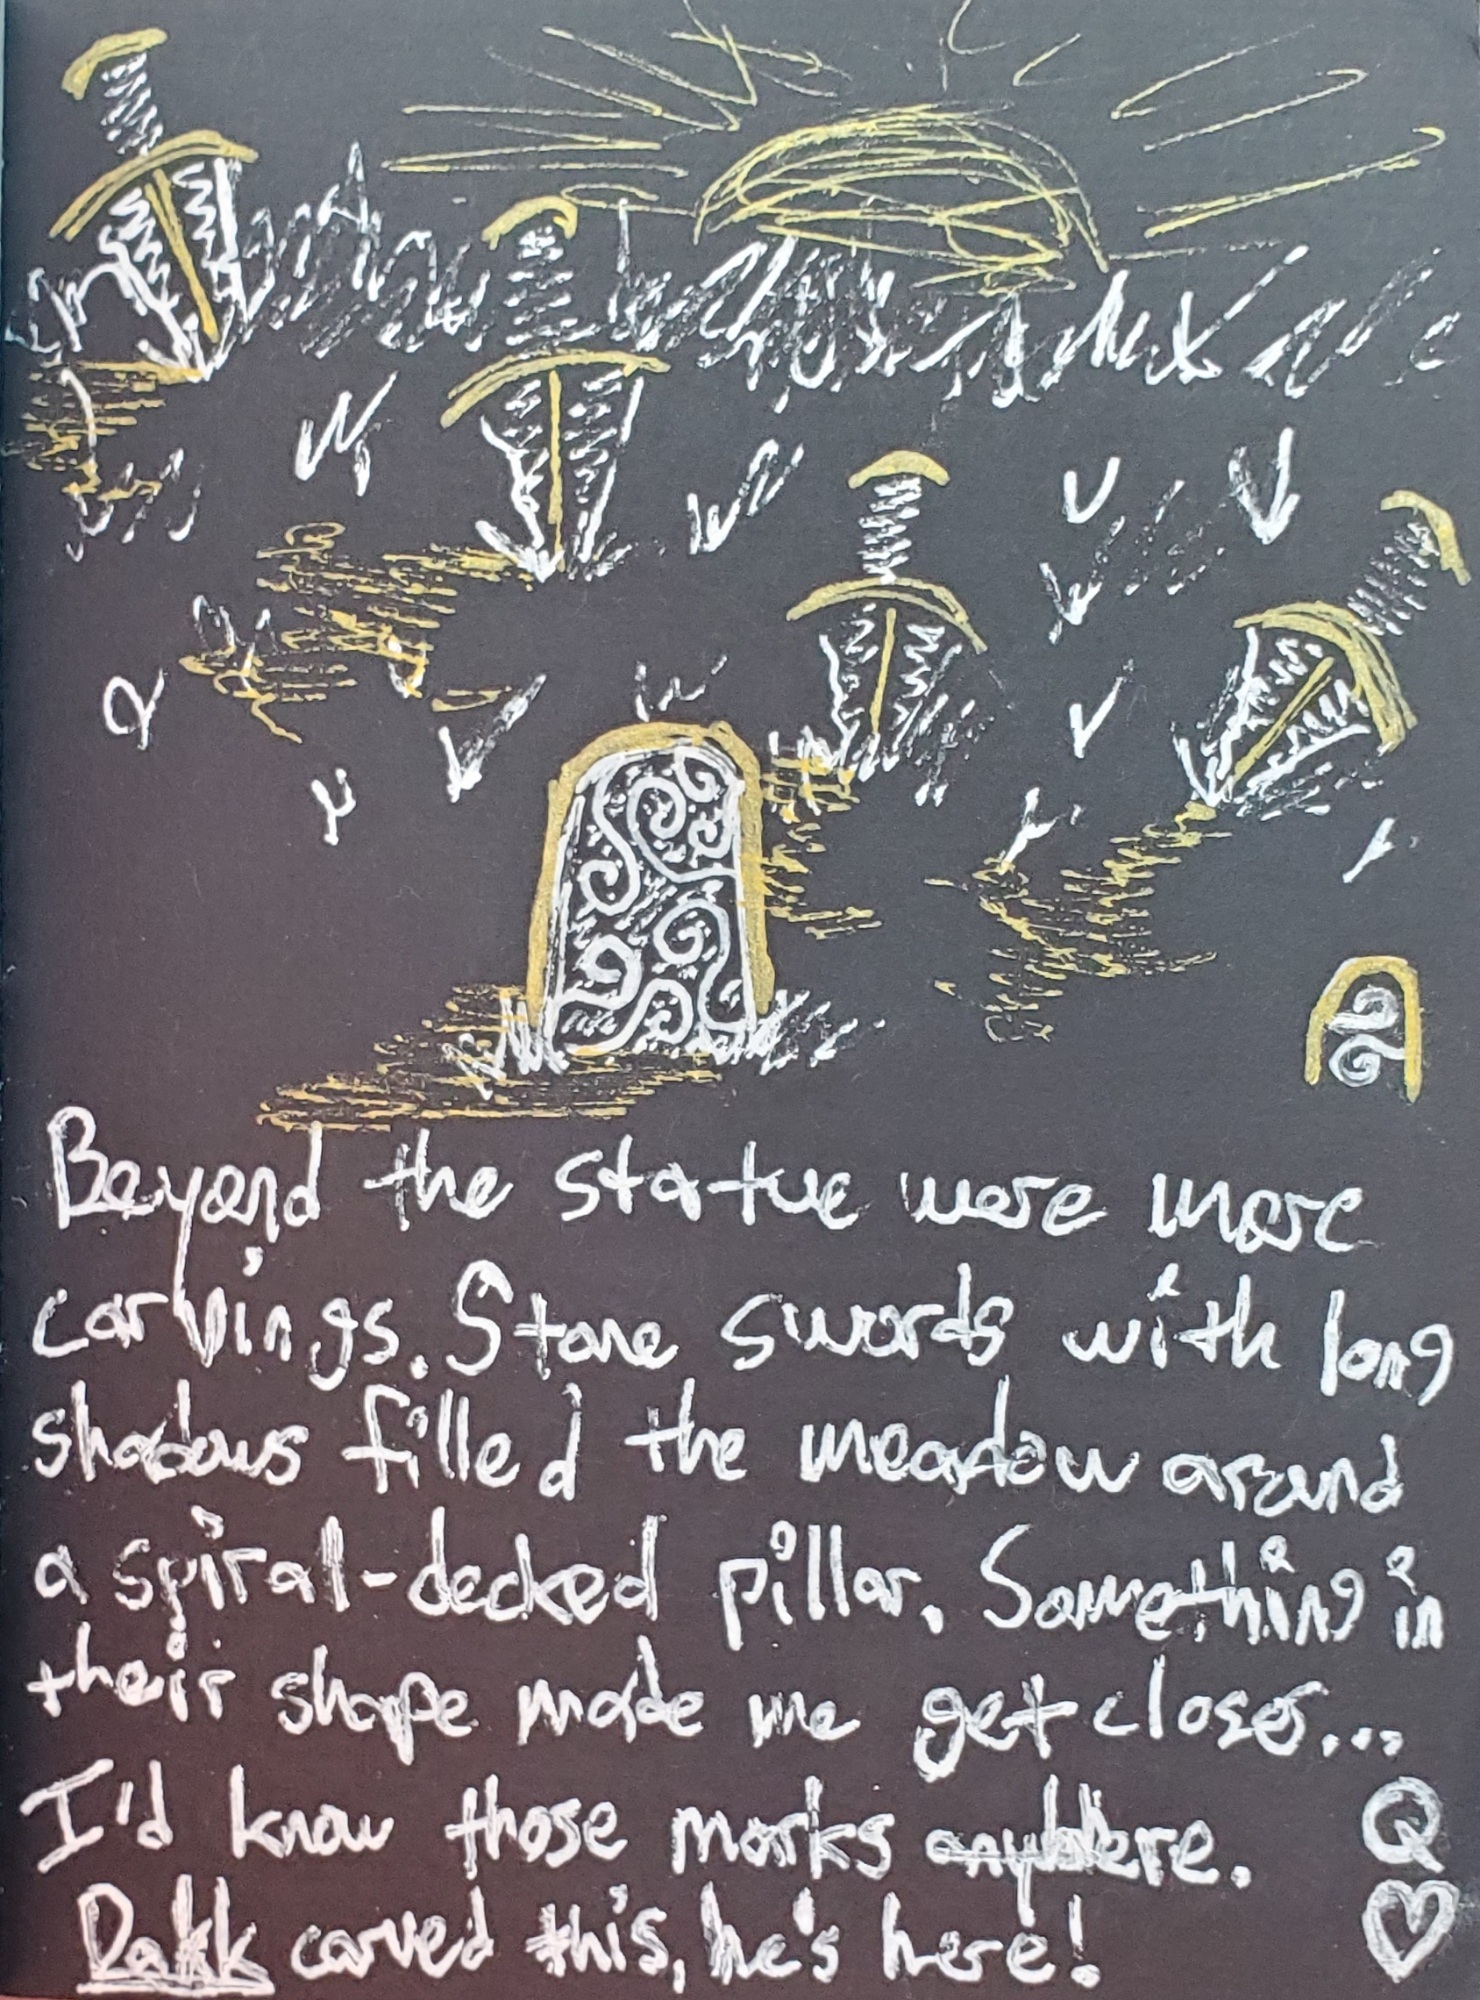 Beyond the statue were more
carvings. Stone swords with long
shadows filled the meadow around
a spiral-decked pillar. Something in
their shape made me get closer...
I'd know those marks anywhere.
Dakk carved this, he's here!
Q
♡